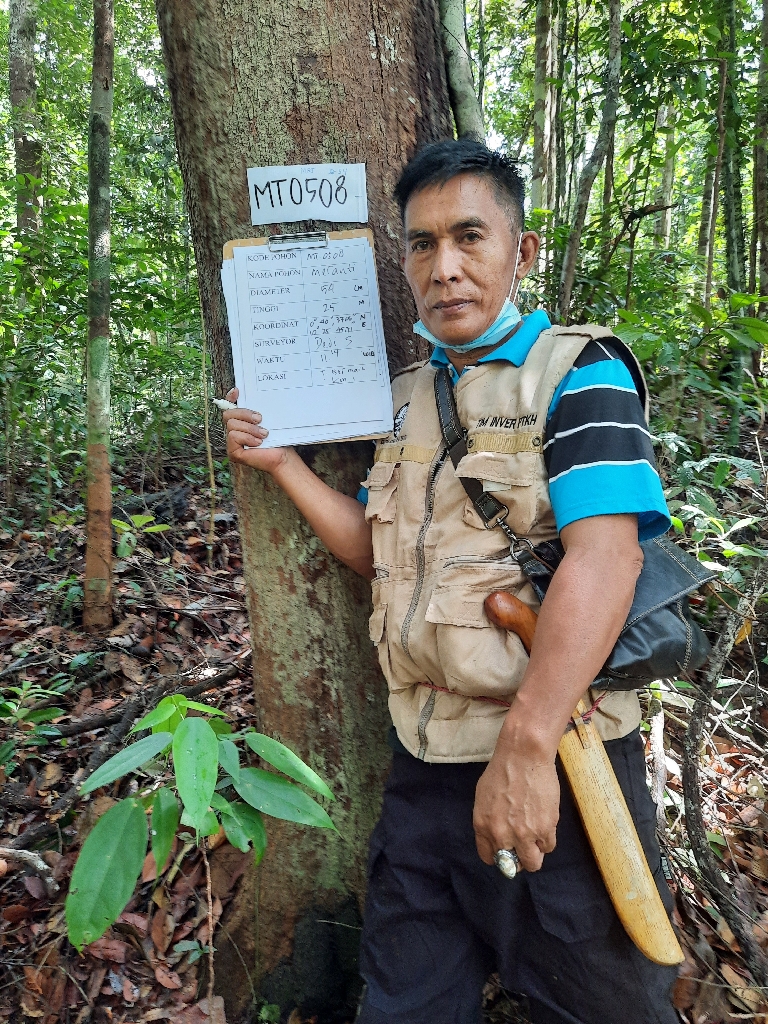 MT0508
KODE POHON : MT 0508
NAMA POHON : Meranti
DIAMETER : 50 CM
TINGGI : 25 M
KOORDINAT : N
E
SURVEYOR : Dodi S
WAKTU : 11.19 WIB
LOKASI :
TIM INVER PTKH